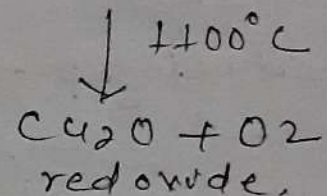 ↓ 1100°C
Cu2O + O2
red oxide.